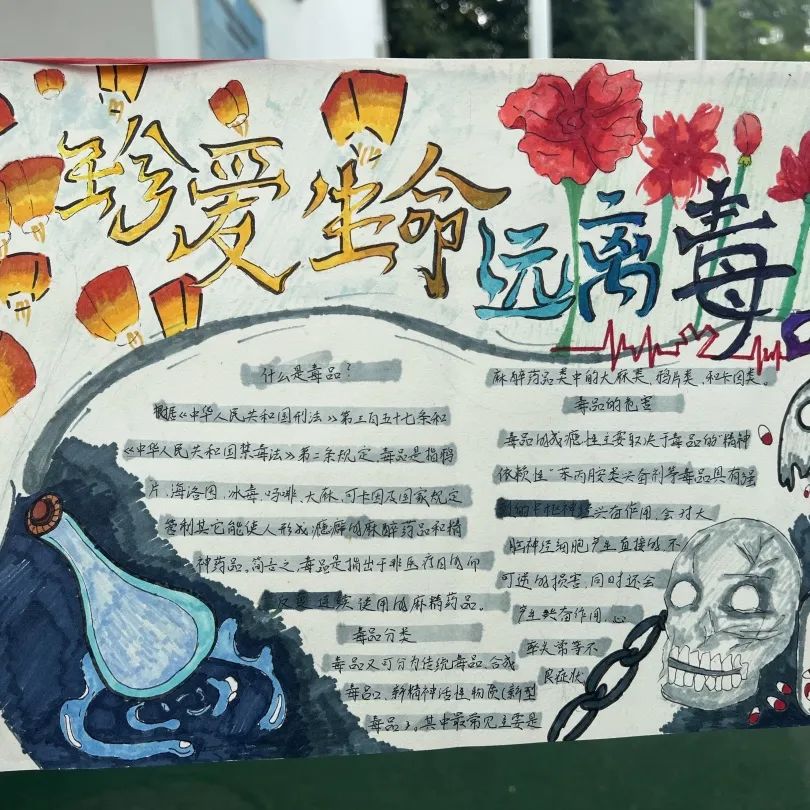 珍爱生命
远离毒
什么是毒品?
根据《中华人民共和国刑法》第三百五十七条和
《中华人民共和国禁毒法》第二条规定,毒品是指鸦
片、海洛因、冰毒、吗啡、大麻、可卡因及国家规定
管制其它能使人形成瘾癖的麻醉药品和精
神药品。简言之,毒品是指出于非医疗目的而
反复连续使用的麻精药品。
毒品分类
毒品又可分为传统毒品、合成
毒品、新精神活性物质(新型
毒品),其中最常见主要是
麻醉药品类中的大麻类、鸦片类、和卡因类。
毒品的危害
毒品的成瘾性主要取决于毒品的"精神
依赖性"苯丙胺类兴奋剂等毒品具有强
烈的中枢神经兴奋作用,会对大
脑神经细胞产生直接的不
可逆的损害,同时还会
产生兴奋作用,心
率失常等不
良症状